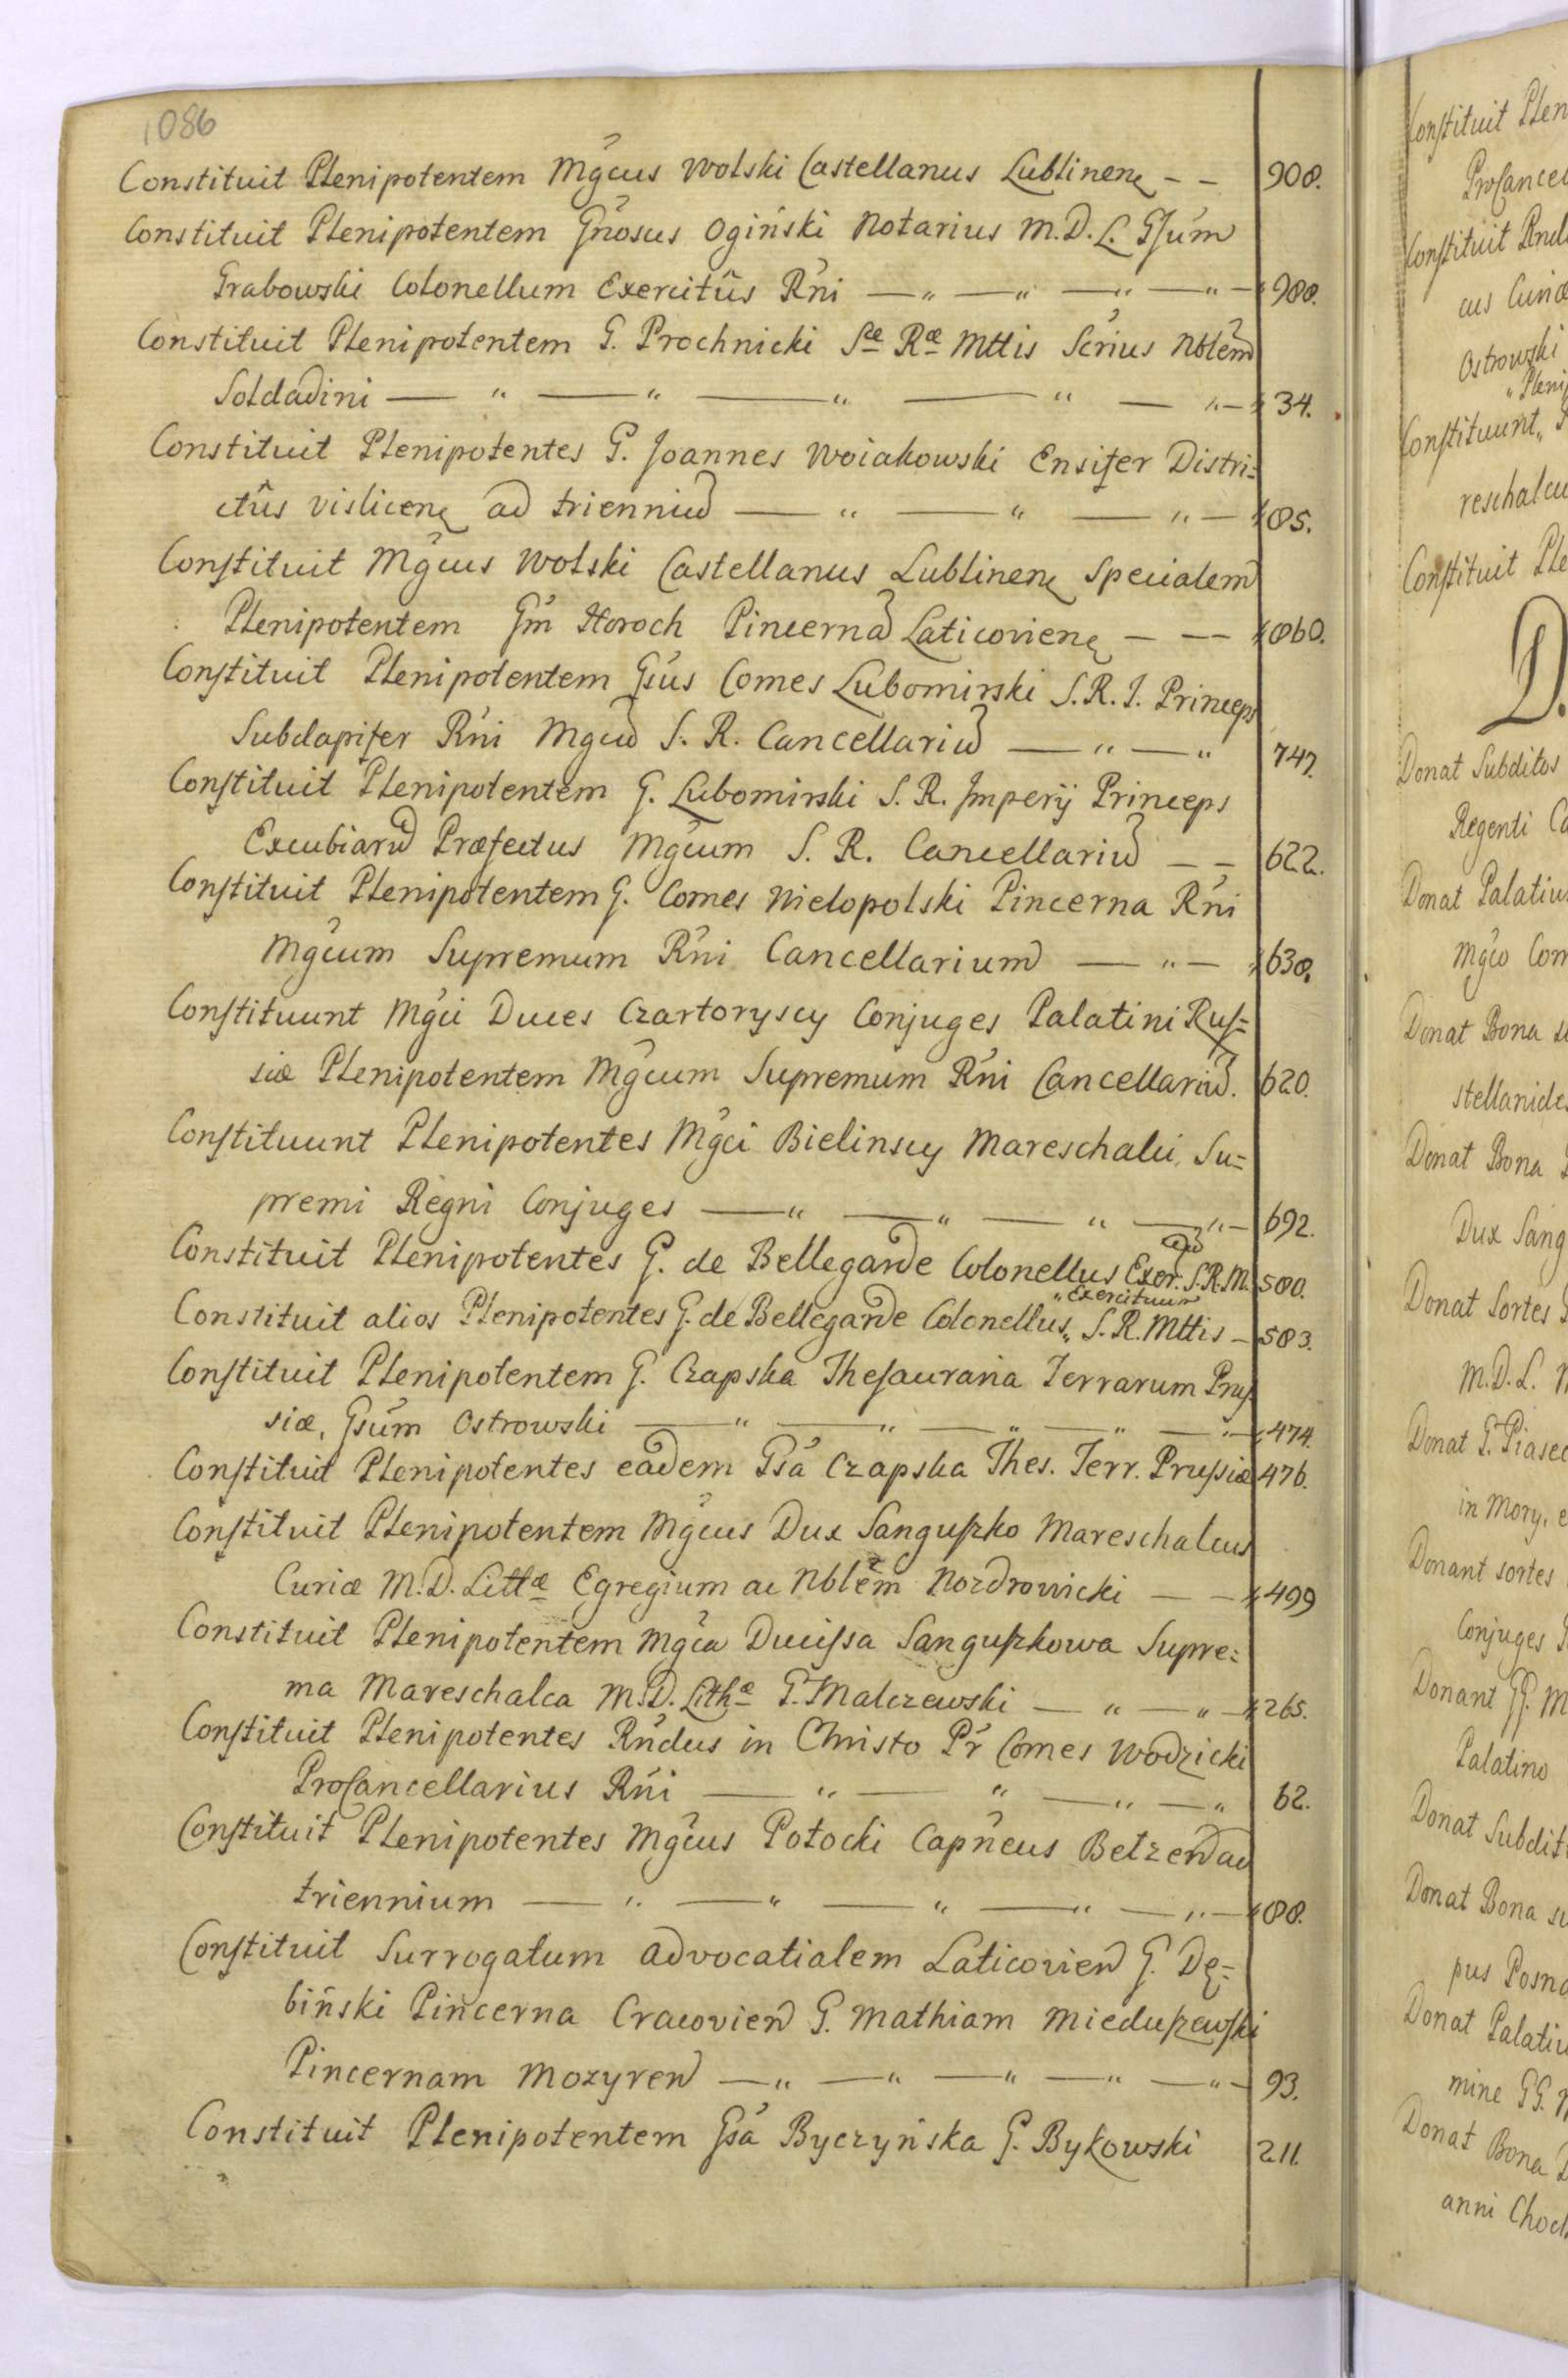 1086
Constituit Plenipotentem Mgcus Wolski Castellanus Lublinen - - 908.
Constituit Plenipotentem Gnosus Ogiński Notarius M.D.L. Gsum
Grabowski Colonellum Exercitûs Rni — " — " — " — " — 988.
Constituit Plenipotentem G. Prochnicki Sæ Ræ Mttis Scrius Nblem
Soldadini — " — " — " — " — " — 34.
Constituit Plenipotentes G. Joannes Woiakowski Ensifer Distri=
ctûs Vislicen ad trienniu — " — " — " — 85.
Constituit Mgcus Wolski Castellanus Lublinen Specialem
Plenipotentem Gm Horoch Pincerna Laticovien — — 860.
Constituit Plenipotentem Gsus Comes Lubomirski S.R.I. Princeps
Subdapifer Rni Mgcu S. R. Cancellariu — " — " 747.
Constituit Plenipotentem G. Lubomirski S. R. Imperij Princeps
Excubiaru Præfectus Mgcum S. R. Cancellariu — — 622.
Constituit Plenipotentem G. Comes Wielopolski Pincerna Rni
Mgcum Supremum Rni Cancellarium — " — 638.
Constituunt Mgci Duces Czartoryscy Conjuges Palatini Rus=
siæ Plenipotentem Mgcum Supremum Rni Cancellariu. 620.
Constituunt Plenipotentes Mgci Bielinscy Mareschalci Su=
premi Regni Conjuges — " — " — " — " — 692.
Constituit Plenipotentes G. de Bellegarde Colonellus Exer. S.R.M. 580.
"Exercituum
Constituit alios Plenipotentes G. de Bellegarde Colonellus" S. R. Mttis — 583.
Constituit Plenipotentem G. Czapska Thesauraria Terrarum Prus
siæ, Gsum Ostrowski — " — " — " — " — " — 474.
Constituit Plenipotentes eadem Gsa Czapska Thes. Terr. Prussiæ 476.
Constituit Plenipotentem Mgcus Dux Sanguszko Mareschalcus
Curiæ M.D. Littæ Egregium ac Nblem Nozdrowicki — — 499
Constituit Plenipotentem Mgca Ducissa Sanguszkowa Supre=
ma Mareschalca M.D. Lithæ G. Malczewski — " — " — 265.
Constituit Plenipotentes Rndus in Christo Pr Comes Wodzicki
ProCancellarius Rni — " — " — " — " 62.
Constituit Plenipotentes Mgcus Potocki Capneus Betzen ad
triennium — " — " — " — " — " — 88.
Constituit Surrogatum Advocatialem Laticovien G. Dę=
biński Pincerna Cracovien G. Mathiam Mieduszewski
Pincernam Mozyren — " — " — " — " — " — 93.
Constituit Plenipotentem Gsa Byczyńska G. Bykowski 211.
Constituit Plen
ProCancel
Constituit Rnd
Ostrowski
"Pleni
Constituunt"
reschalcu
Constituit Ple
D.
Donat Subditos
Regenti Ca
Donat Palatiu
Mgco Com
Donat Bona su
stellanide
Donat Bona
Dux Sang
Donat Sortes
M.D.L.
Donat G. Piasec
in Mory, e
Donant sortes
Conjuges
Donant GG. M
Palatino
Donat Subdit
Donat Bona su
pus Posna
Donat Palatiu
mine GG.
Donat Bona
anni Chod